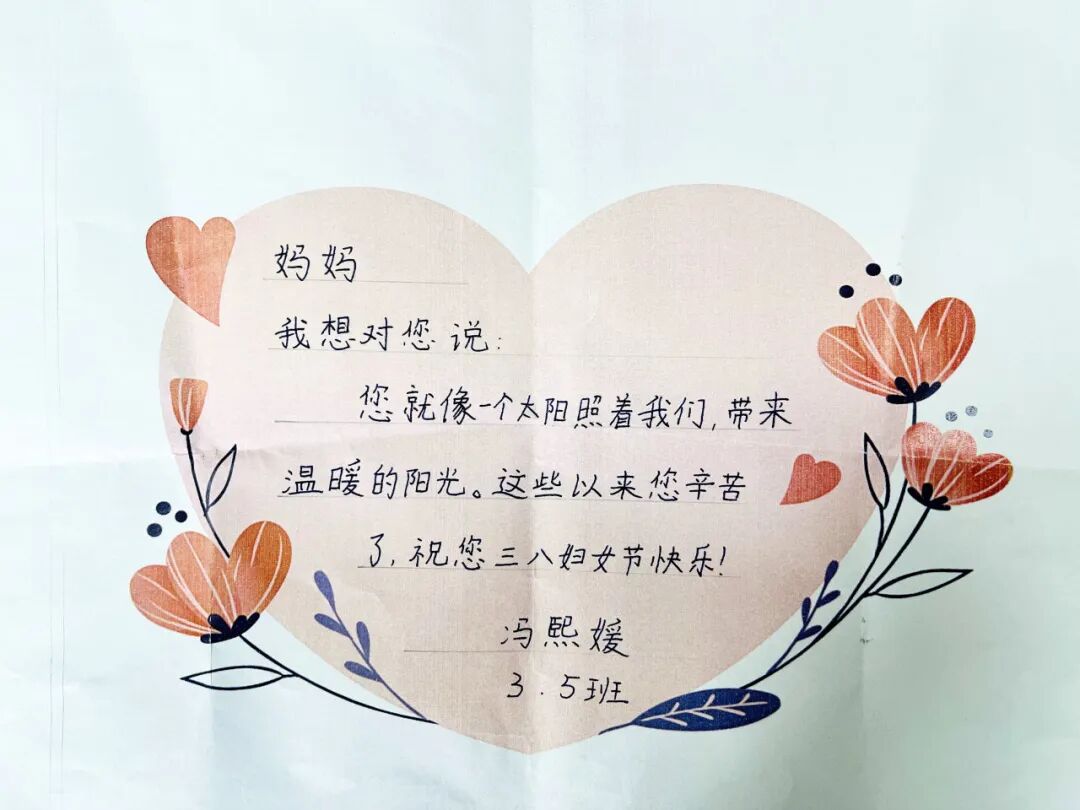 妈妈
我想对您说：
您就像一个太阳照着我们，带来
温暖的阳光。这些以来您辛苦
了，祝您三八妇女节快乐！
冯熙媛
3.5班